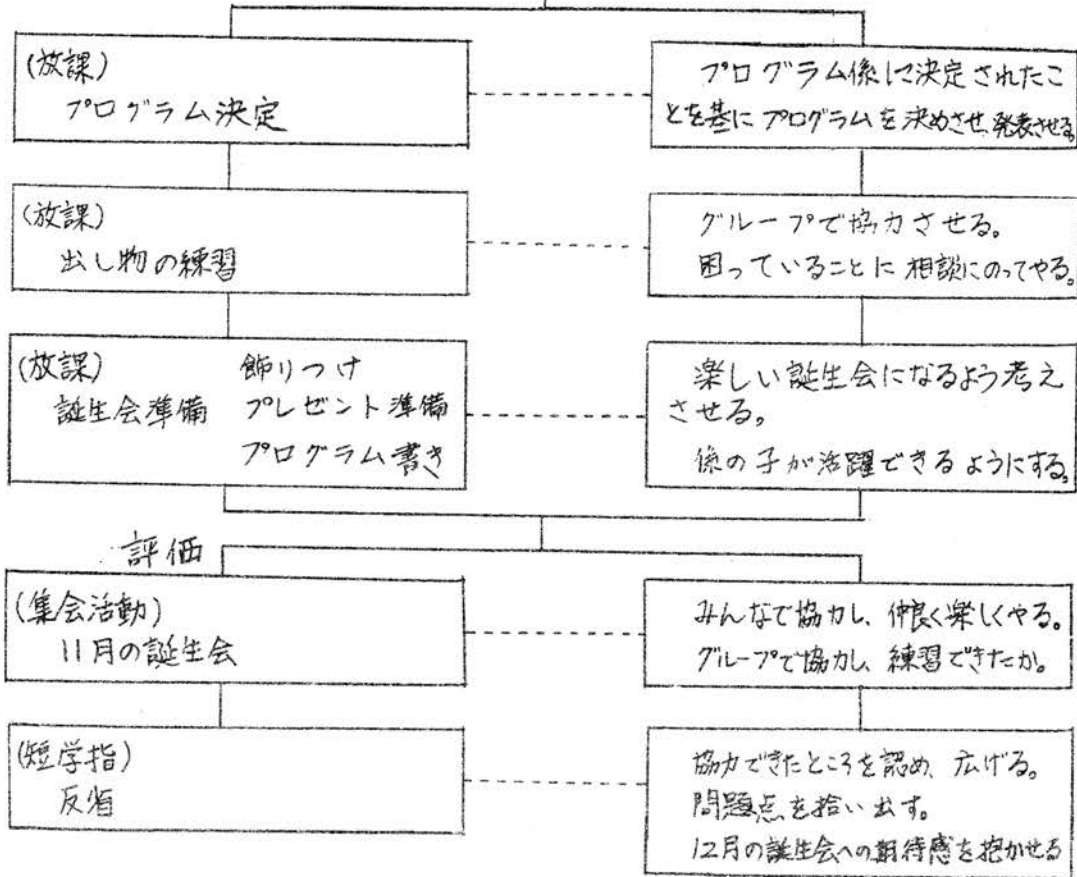 (放課)
プログラム決定
プログラム係に決定されたこ
とを基にプログラムを決めさせ、発表させる。
(放課)
出し物の練習
グループで協力させる。
困っていることに相談にのってやる。
(放課) 飾りつけ
誕生会準備 プレゼント準備
プログラム書き
楽しい誕生会になるよう考え
させる。
係の子が活躍できるようにする。
評価
(集会活動)
11月の誕生会
みんなで協力し、仲良く楽しくやる。
グループで協力し、練習できたか。
(短学指)
反省
協力できたところを認め、広げる。
問題点を拾い出す。
12月の誕生会への期待感を抱かせる